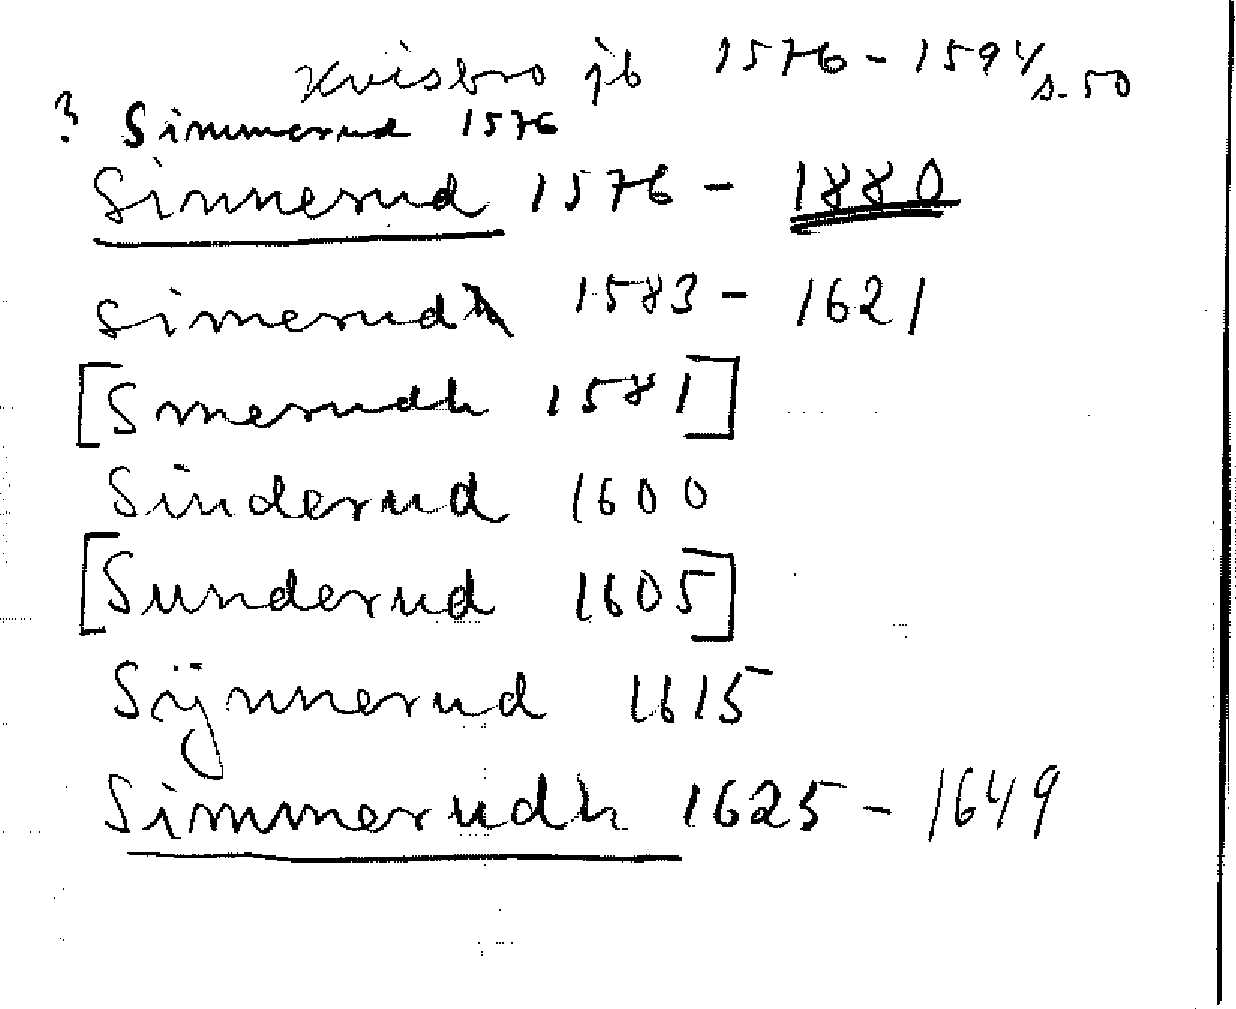 Kvisbro jb 1576-1594/s. 50
? Simmerud 1576
Sinnerud 1576 - 1880
Simerudh 1583 - 1621
[Smerudh 1581]
Sinderud 1600
[Sunderud 1605]
Sÿnnerud 1615
Simmerudh 1625 - 1649